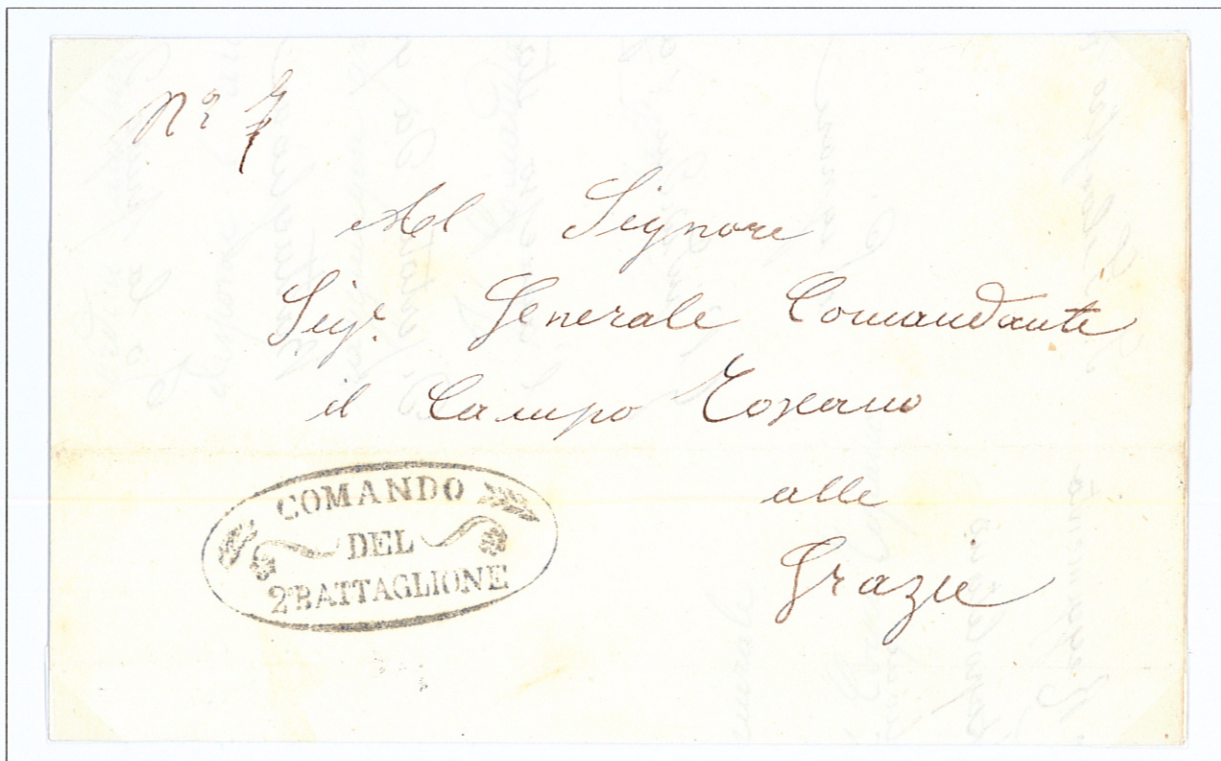 Nº 7
Al Signore
Sigr. Generale Comandante
il Campo Toscano
alle
Grazie
COMANDO
DEL
2º BATTAGLIONE